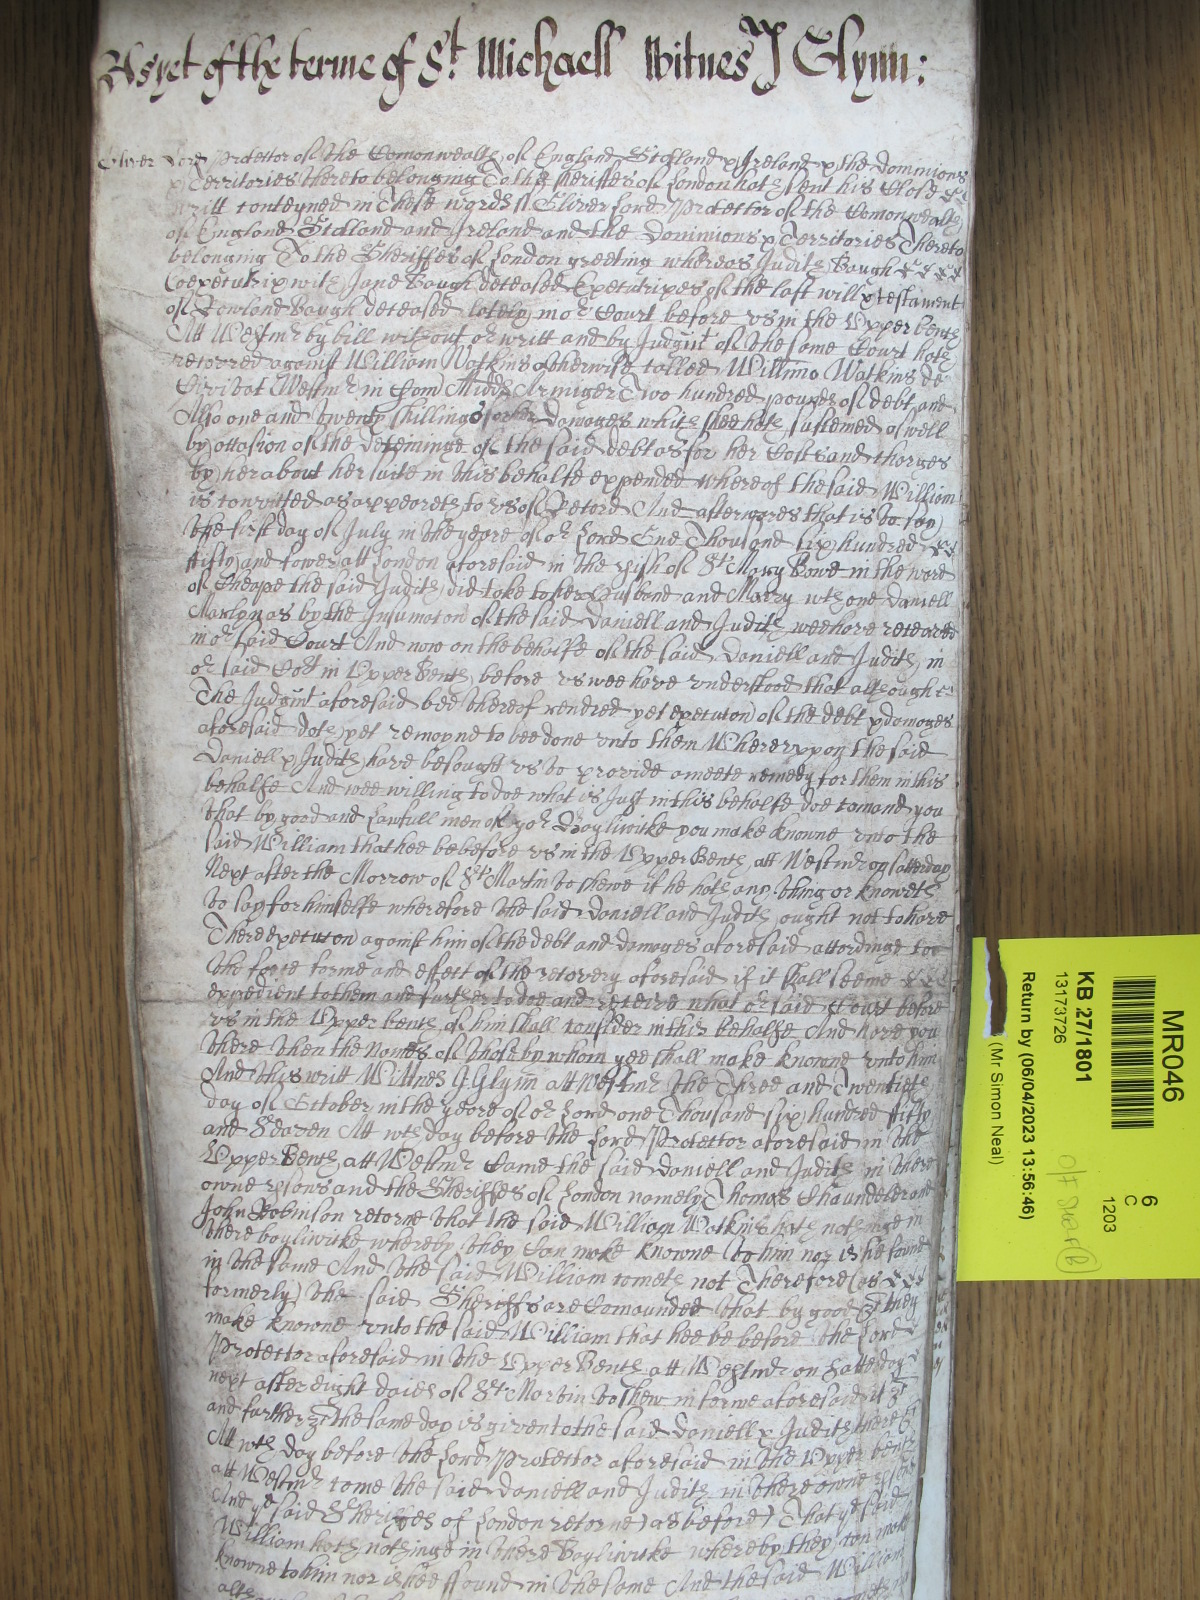 As yet of the terme of St. Michaell Witnes J Glynn:
Oliver Lord Protector of the Comonwealth of England Scotland & Ireland & the Dominions
& Territories thereto belonging To the Sheriffes of London hath sent his Close
writt conteyned in These words ss Oliver Lord Protector of the Comonwealth
of England Scotland and Ireland and the Dominions & Territories Thereto
belonging To the Sheriffes of London greeting whereas Judith Baugh
Coexecutrix with Jane Baugh deceased Executrixes of the last will & testament
of Rowland Baugh deceased lately in or Court before vs in the Vpper bench
Att Westmr by bill without or writt and by Judgmt of the same Court hath
recovered against William Watkins otherwise called Willimo Watkins de
Civitat Westmr in Com Midds Armiger Two hundred pounds of debt and
Also one and twenty shillings for her Damages which shee hath susteined aswell
by occasion of the deteininge of the said debt as for her Costs and charges
by her about her suite in this behalfe expended whereof the said William
is convicted as appeareth to vs of Record And afterwards that is to say
the first day of July in the yeare of or Lord One Thousand six hundred
fifty and fower att London aforesaid in the pish of St Mary Bowe in the ward
of Cheape the said Judith did take to her Husband and Marry wth one Daniell
as by the Informacon of the said Daniell and Judith wee have receaved
in or said Court And now on the behalfe of the said Daniell and Judith in
or said Cort in Vpper Bench before vs wee have vnderstood that although
The Judgmt aforesaid bee thereof rendred yet execucon of the debt & damages
aforesaid doth yet remayne to bee done vnto them Wherevpon the said
Daniell & Judith have besought vs to provide a meete remedy for them in this
behalfe And wee willing to doe what is Just in this behalfe doe comand you
that by good and Lawfull men of yor Bayliwicke you make knowne vnto the
said William that hee be before vs in the Vpper Bench att Westmr on Satterday
Next after the Morrow of St Martin to shewe if he hath any thing or knoweth
to say for himselfe wherefore the said Daniell and Judith ought not to have
There execucon against him of the debt and damages aforesaid accordinge to
the force forme and effect of the recovery aforesaid if it shall seeme
expedient to them and further to doe and receive what or said Court before
vs in the Vpper bench of him shall consider in this behalfe And have you
there then the Names of those by whom yee shall make knowne vnto him
And this writt Wittnes J Glynn att Westmr the Three and Twentieth
day of October in the yeare of or Lord one Thousand six hundred fifty
and Seaven Att wch day before the Lord Protector aforesaid in the
Vpper Bench att Westmr Came the said Daniell and Judith in there
owne psons and the Sheriffes of London namely Thomas Chaundeler and
John Robinson retorne that the said William Watkins hath nothinge in
there bayliwicke whereby they Can make knowne to him nor is he found
in the same And the said William cometh not Therefore (as
formerly) the said Sheriffs are Comaunded that by good &c they
make knowne vnto the said William that hee be before the Lord
Protector aforesaid in the Vpper Bench att Westmr on Satterday
next after eight daies of St Martin to shew in forme aforesaid if &c
and further &c the same day is given to the said Daniell & Judith there &c
Att wch day before the Lord Protector aforesaid in the Vpper bench
att Westmr come the said Daniell and Judith in there owne psons
And ye said Sheriffes of London retorne (as before) That ye said
William hath nothinge in there Bayliwicke whereby they can make
knowne to him nor is hee found in the same And the said William
MR046
6
C
1203
KB 27/1801
13173726
Return by (06/04/2023 13:56:46)
(Mr Simon Neal)